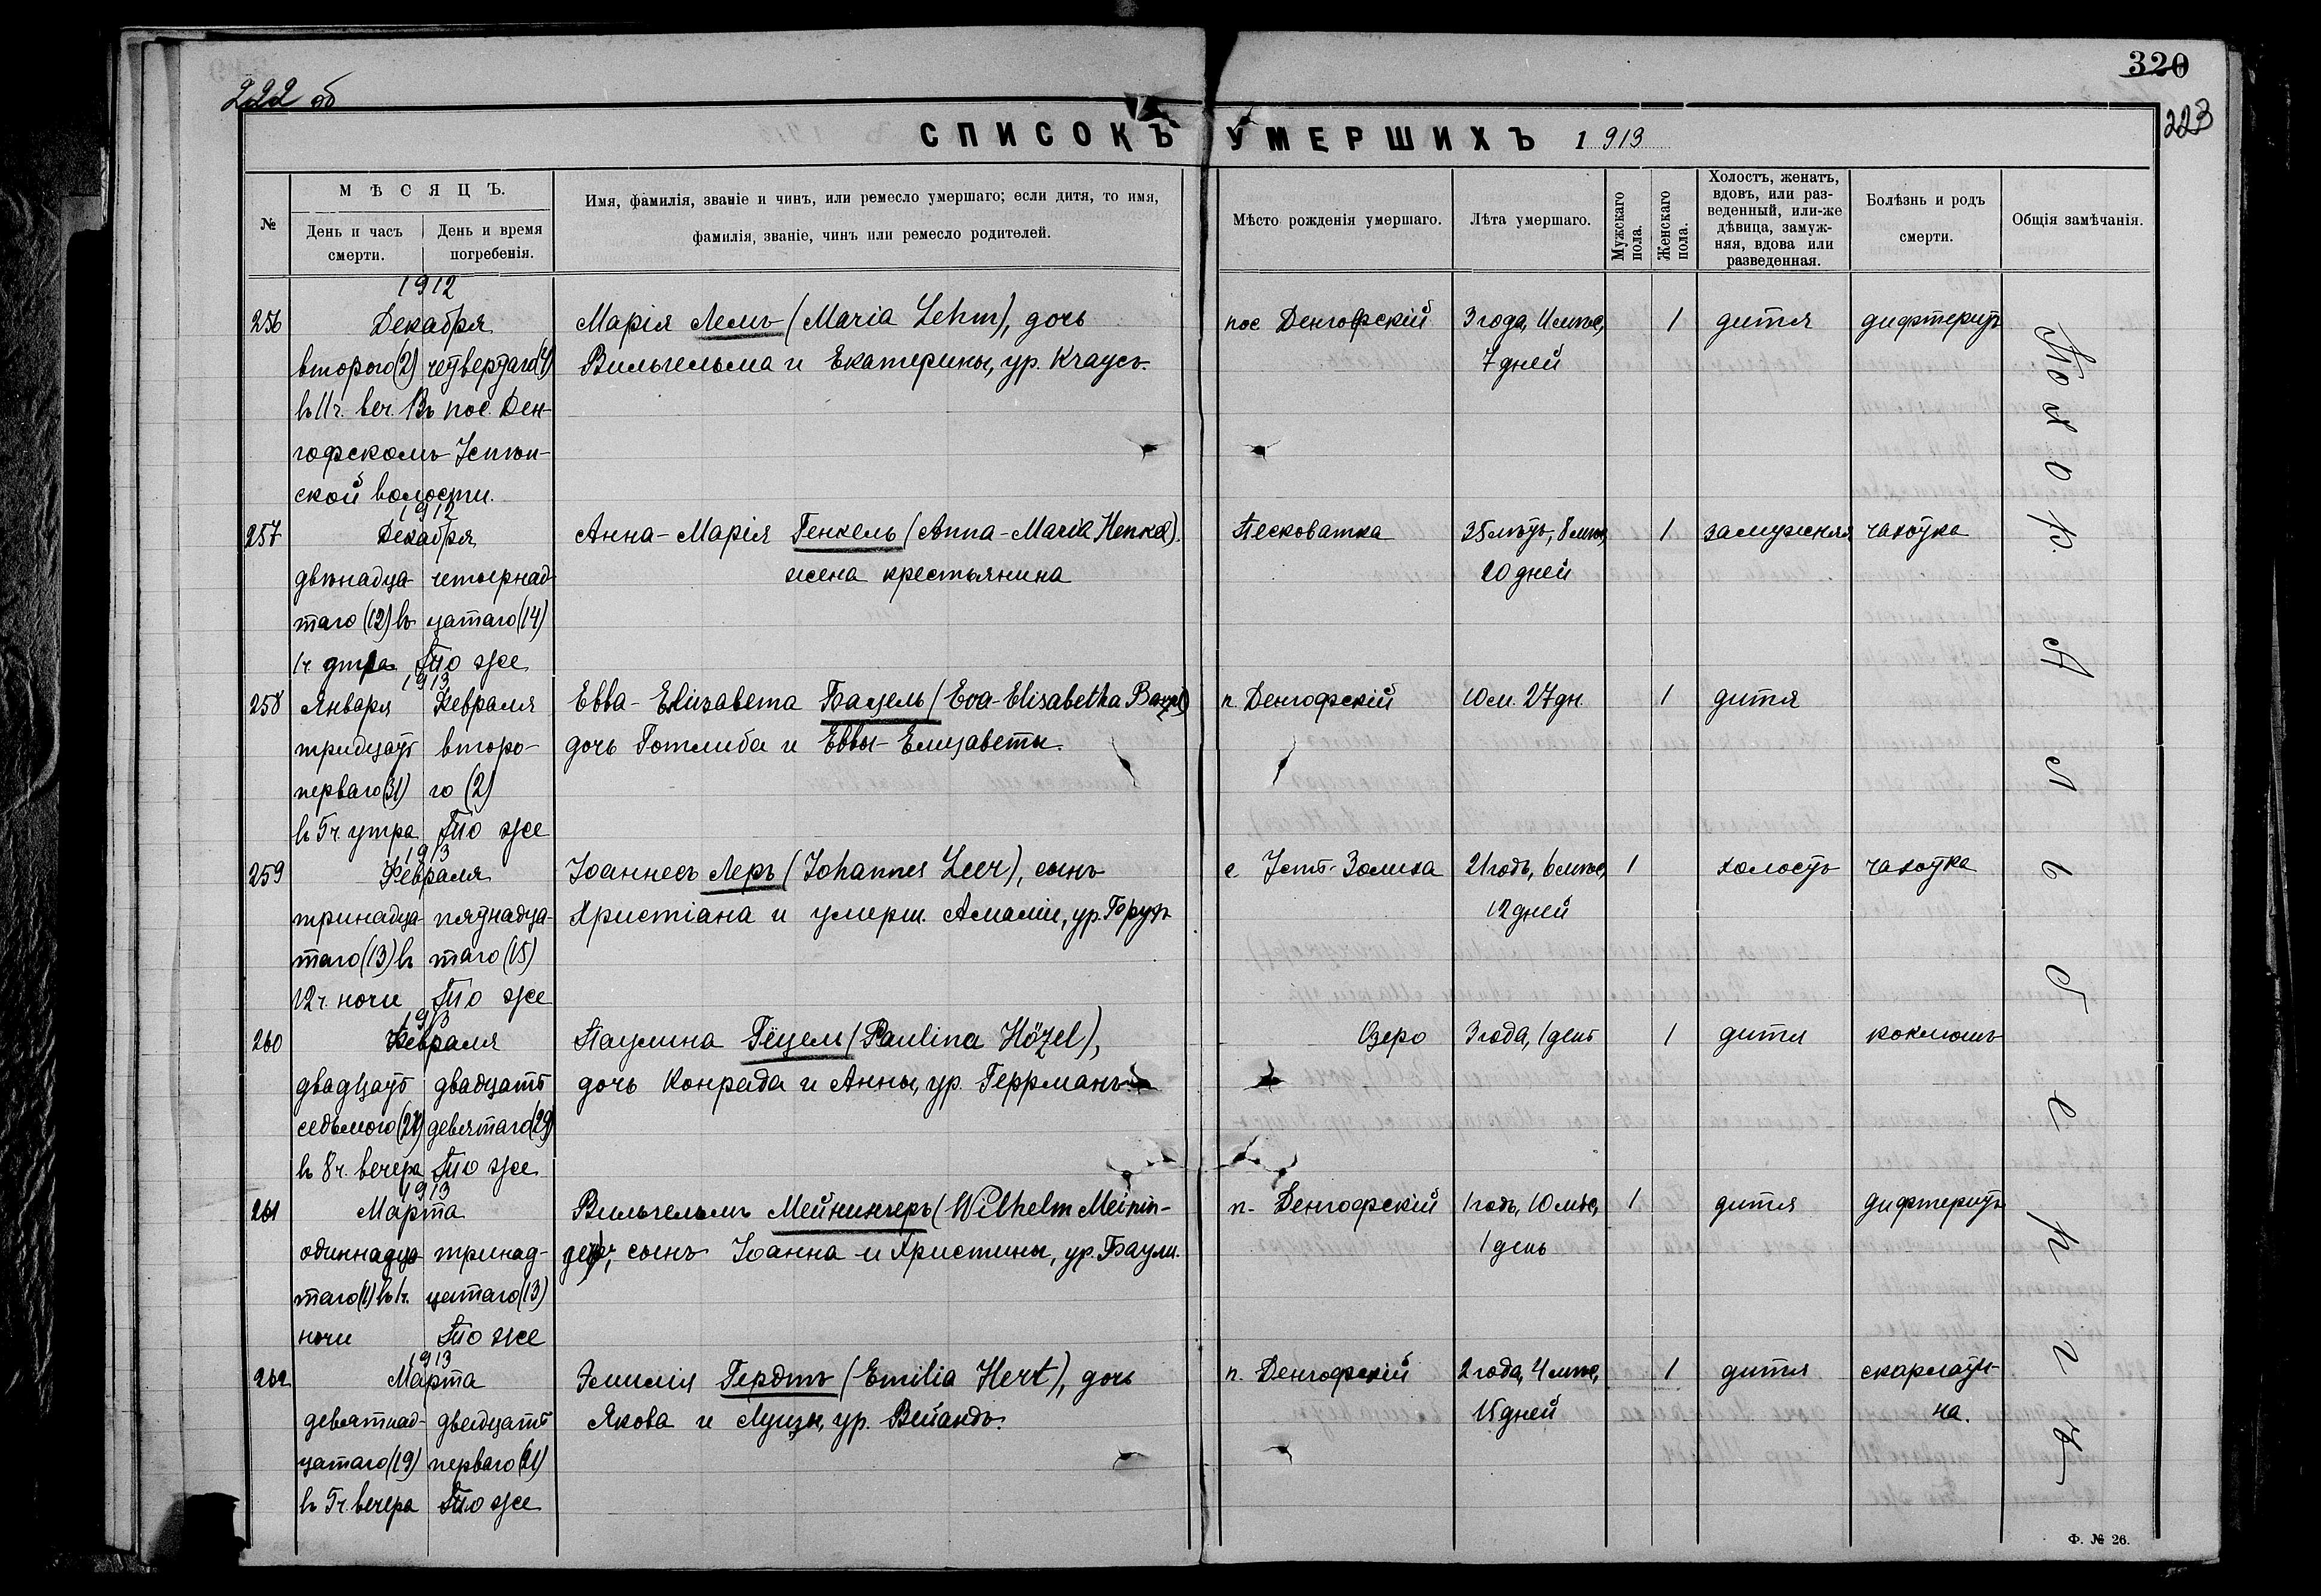 320
222 об
223
СПИСОКЪ УМЕРШИХЪ 1913
№
МѢСЯЦЪ.
День и часъ смерти.
День и время погребенія.
Имя, фамилія, званіе и чинъ, или ремесло умершаго; если дитя, то имя,
фамилія, званіе, чинъ или ремесло родителей.
Мѣсто рожденія умершаго.
Лѣта умершаго.
Мужскаго пола.
Женскаго пола.
Холостъ, женатъ,
вдовъ, или раз-
веденный, или-же
дѣвица, замуж-
няя, вдова или
разведенная.
Болѣзнь и родъ
смерти.
Общія замѣчанія.
1912
256 Декабря Марія Лемъ (Maria Lehm), дочь пос Денгофскій 3 года, 11 мѣс, 1 дитя дифтеритъ
второго (2) четвертаго (4) Вильгельма и Екатерины, ур. Краусъ. 7 дней
въ 11 ч. веч. Въ пос. Ден-
гофскомъ
ской волости.
1912
257 Декабря Анна-Марія Генкель (Anna-Maria Henkel). Песковатка 35 лѣтъ, 8 мѣс, 1 замужняя чахотка
двѣнадца- четырнад- жена крестьянина 20 дней
таго (12) въ цатаго (14)
1 ч. утра То же
1913
258 Января Февраля Евва-Елизавета Бацель (Eva-Elisabetha Bazel) п. Денгофскій 10 м. 27 дн. 1 дитя
тридцать второ- дочь Готлиба и Еввы-Елизаветы.
перваго (31) го (2)
въ 5 ч. утра То же
1913
259 Февраля Іоаннесъ Леръ (Johannes Leer), сынъ с. Усть-Золиха 21 годъ, 6 мѣс, 1 холостъ чахотка
тринадца- пятнадца- Христіана и умерш. Амаліи, ур. 12 дней
таго (13) въ таго (15)
12 ч. ночи То же
1913
260 Февраля Паулина Гёцель (Paulina Hözel), Озеро 3 года, 1 день 1 дитя коклюшъ
двадцать двадцать дочь Конрада и Анны, ур. Геррманъ
седьмого (27) девятаго (29)
въ 8 ч. вечера То же
1913
261 Марта Вильгельмъ Мейнингеръ (Wilhelm Meinin- п. Денгофскій 1 годъ, 10 мѣс, 1 дитя дифтеритъ
одиннадца- тринад- ger), сынъ Іоанна и Христины, ур. Баумъ. 1 день
таго (11) въ 1 ч. цатаго (13)
ночи То же
1913
262 Марта Эмилія Гердтъ (Emilia Hert), дочь п. Денгофскій 2 года, 4 мѣс, 1 дитя скарлати-
девятнад- двадцать Якова и Луизы, ур. Вейандъ. 15 дней на.
цатаго (19) перваго (21)
въ 5 ч. вечера То же
Ф. № 26.